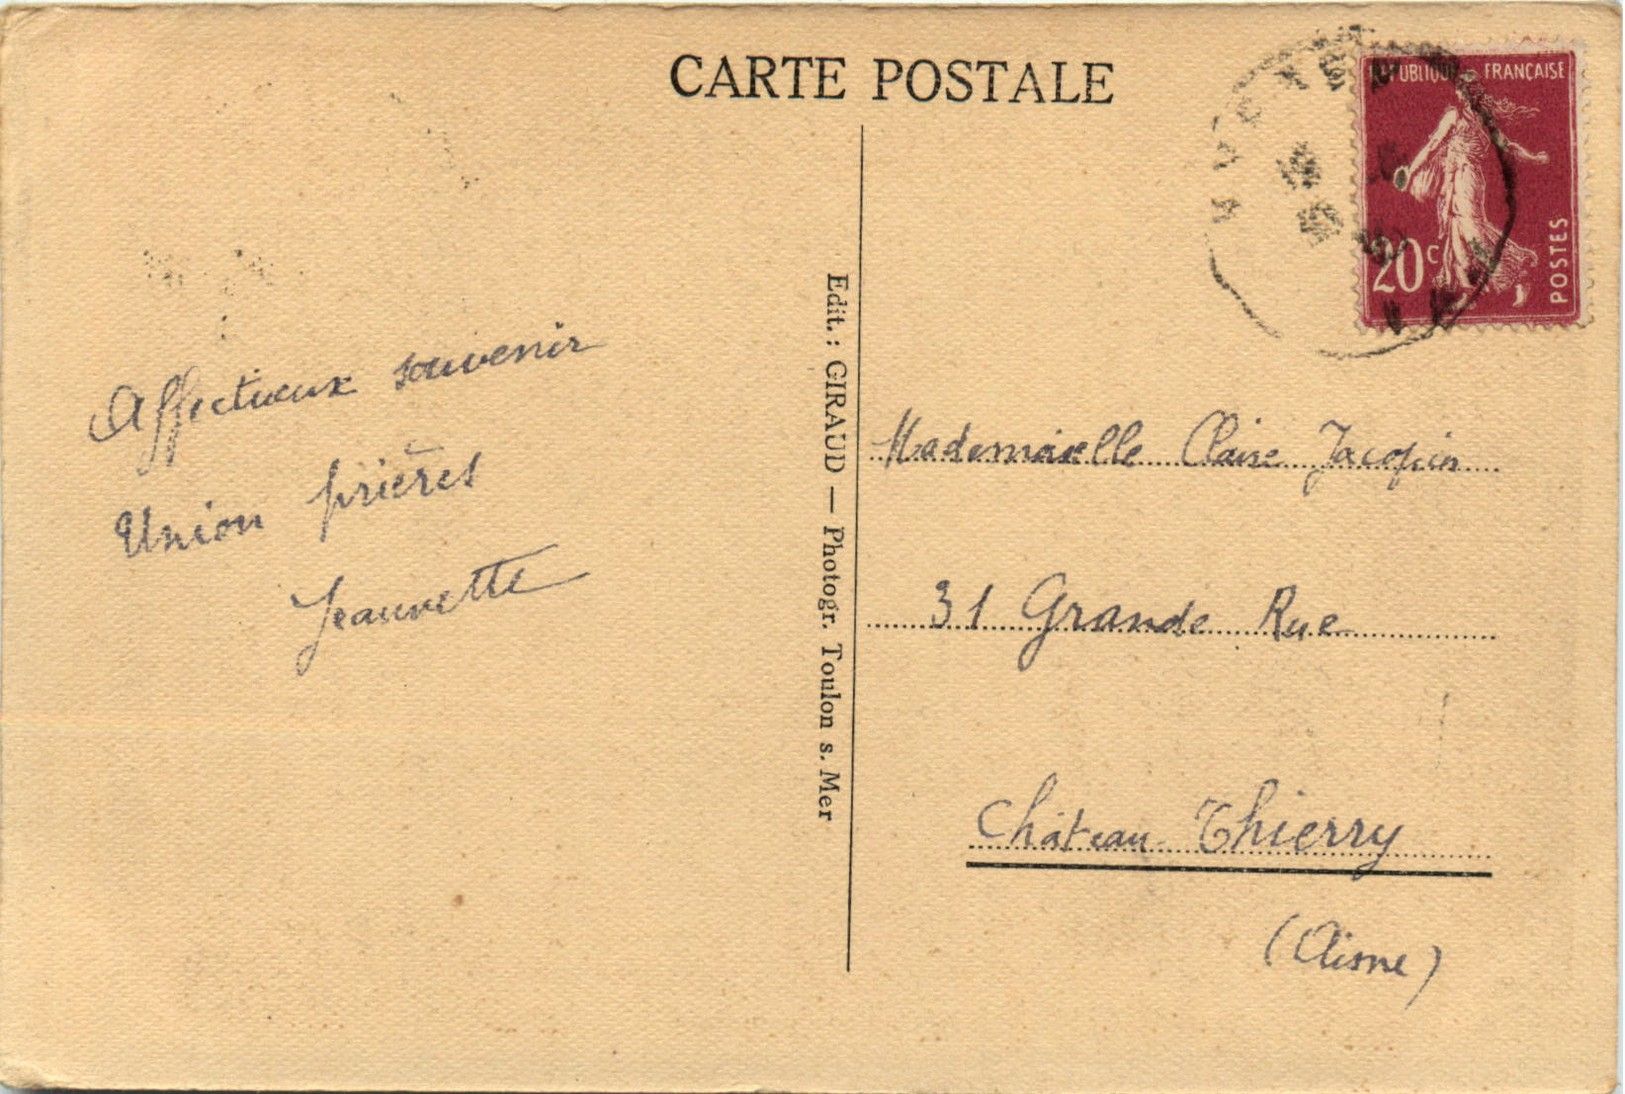 CARTE POSTALE
REPUBLIQUE FRANÇAISE
20c
POSTES
Affectueux souvenir
Union prières
Jeannette
Edit.: GIRAUD — Photogr. Toulon s. Mer
Mademoiselle Claire Jacopin
31 Grande Rue
Château-Thierry
(Aisne)